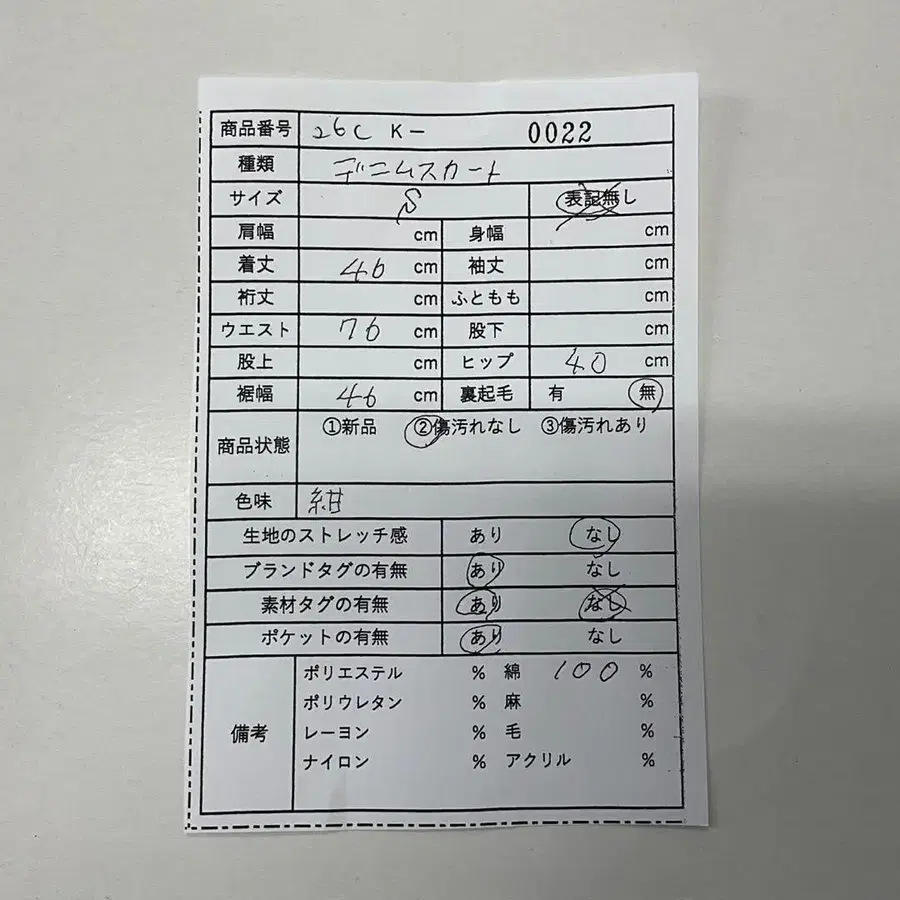 商品番号 26C K- 0022
種類 デニムスカート
サイズ S 表記無し
肩幅 cm 身幅 cm
着丈 46 cm 袖丈 cm
裄丈 cm ふともも cm
ウエスト 76 cm 股下 cm
股上 cm ヒップ 40 cm
裾幅 46 cm 裏起毛 有 無
商品状態 ①新品 ②傷汚れなし ③傷汚れあり
色味 紺
生地のストレッチ感 あり なし
ブランドタグの有無 あり なし
素材タグの有無 あり なし
ポケットの有無 あり なし
備考
ポリエステル % 綿 100 %
ポリウレタン % 麻 %
レーヨン % 毛 %
ナイロン % アクリル %